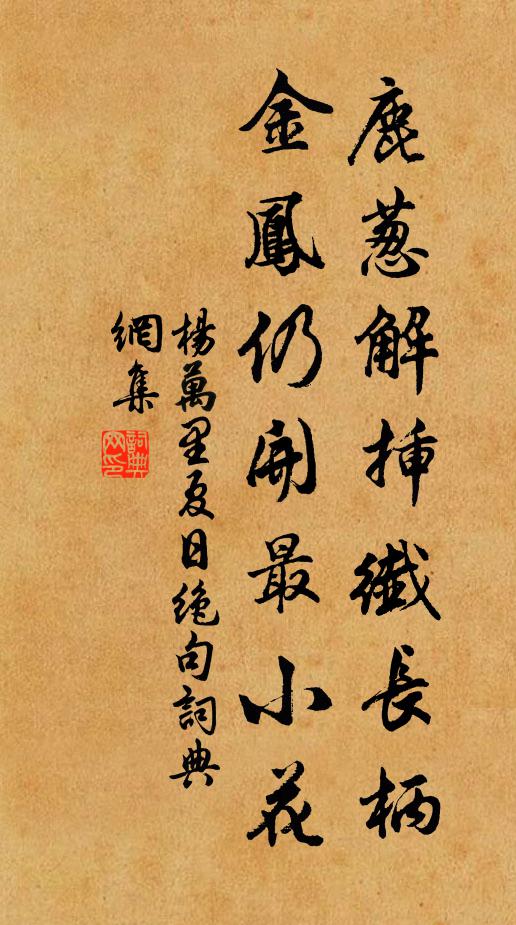 鹿葱解插纖長柄
金鳳仍開最小花
楊萬里夏日絕句詞典
網集
詞典
网印